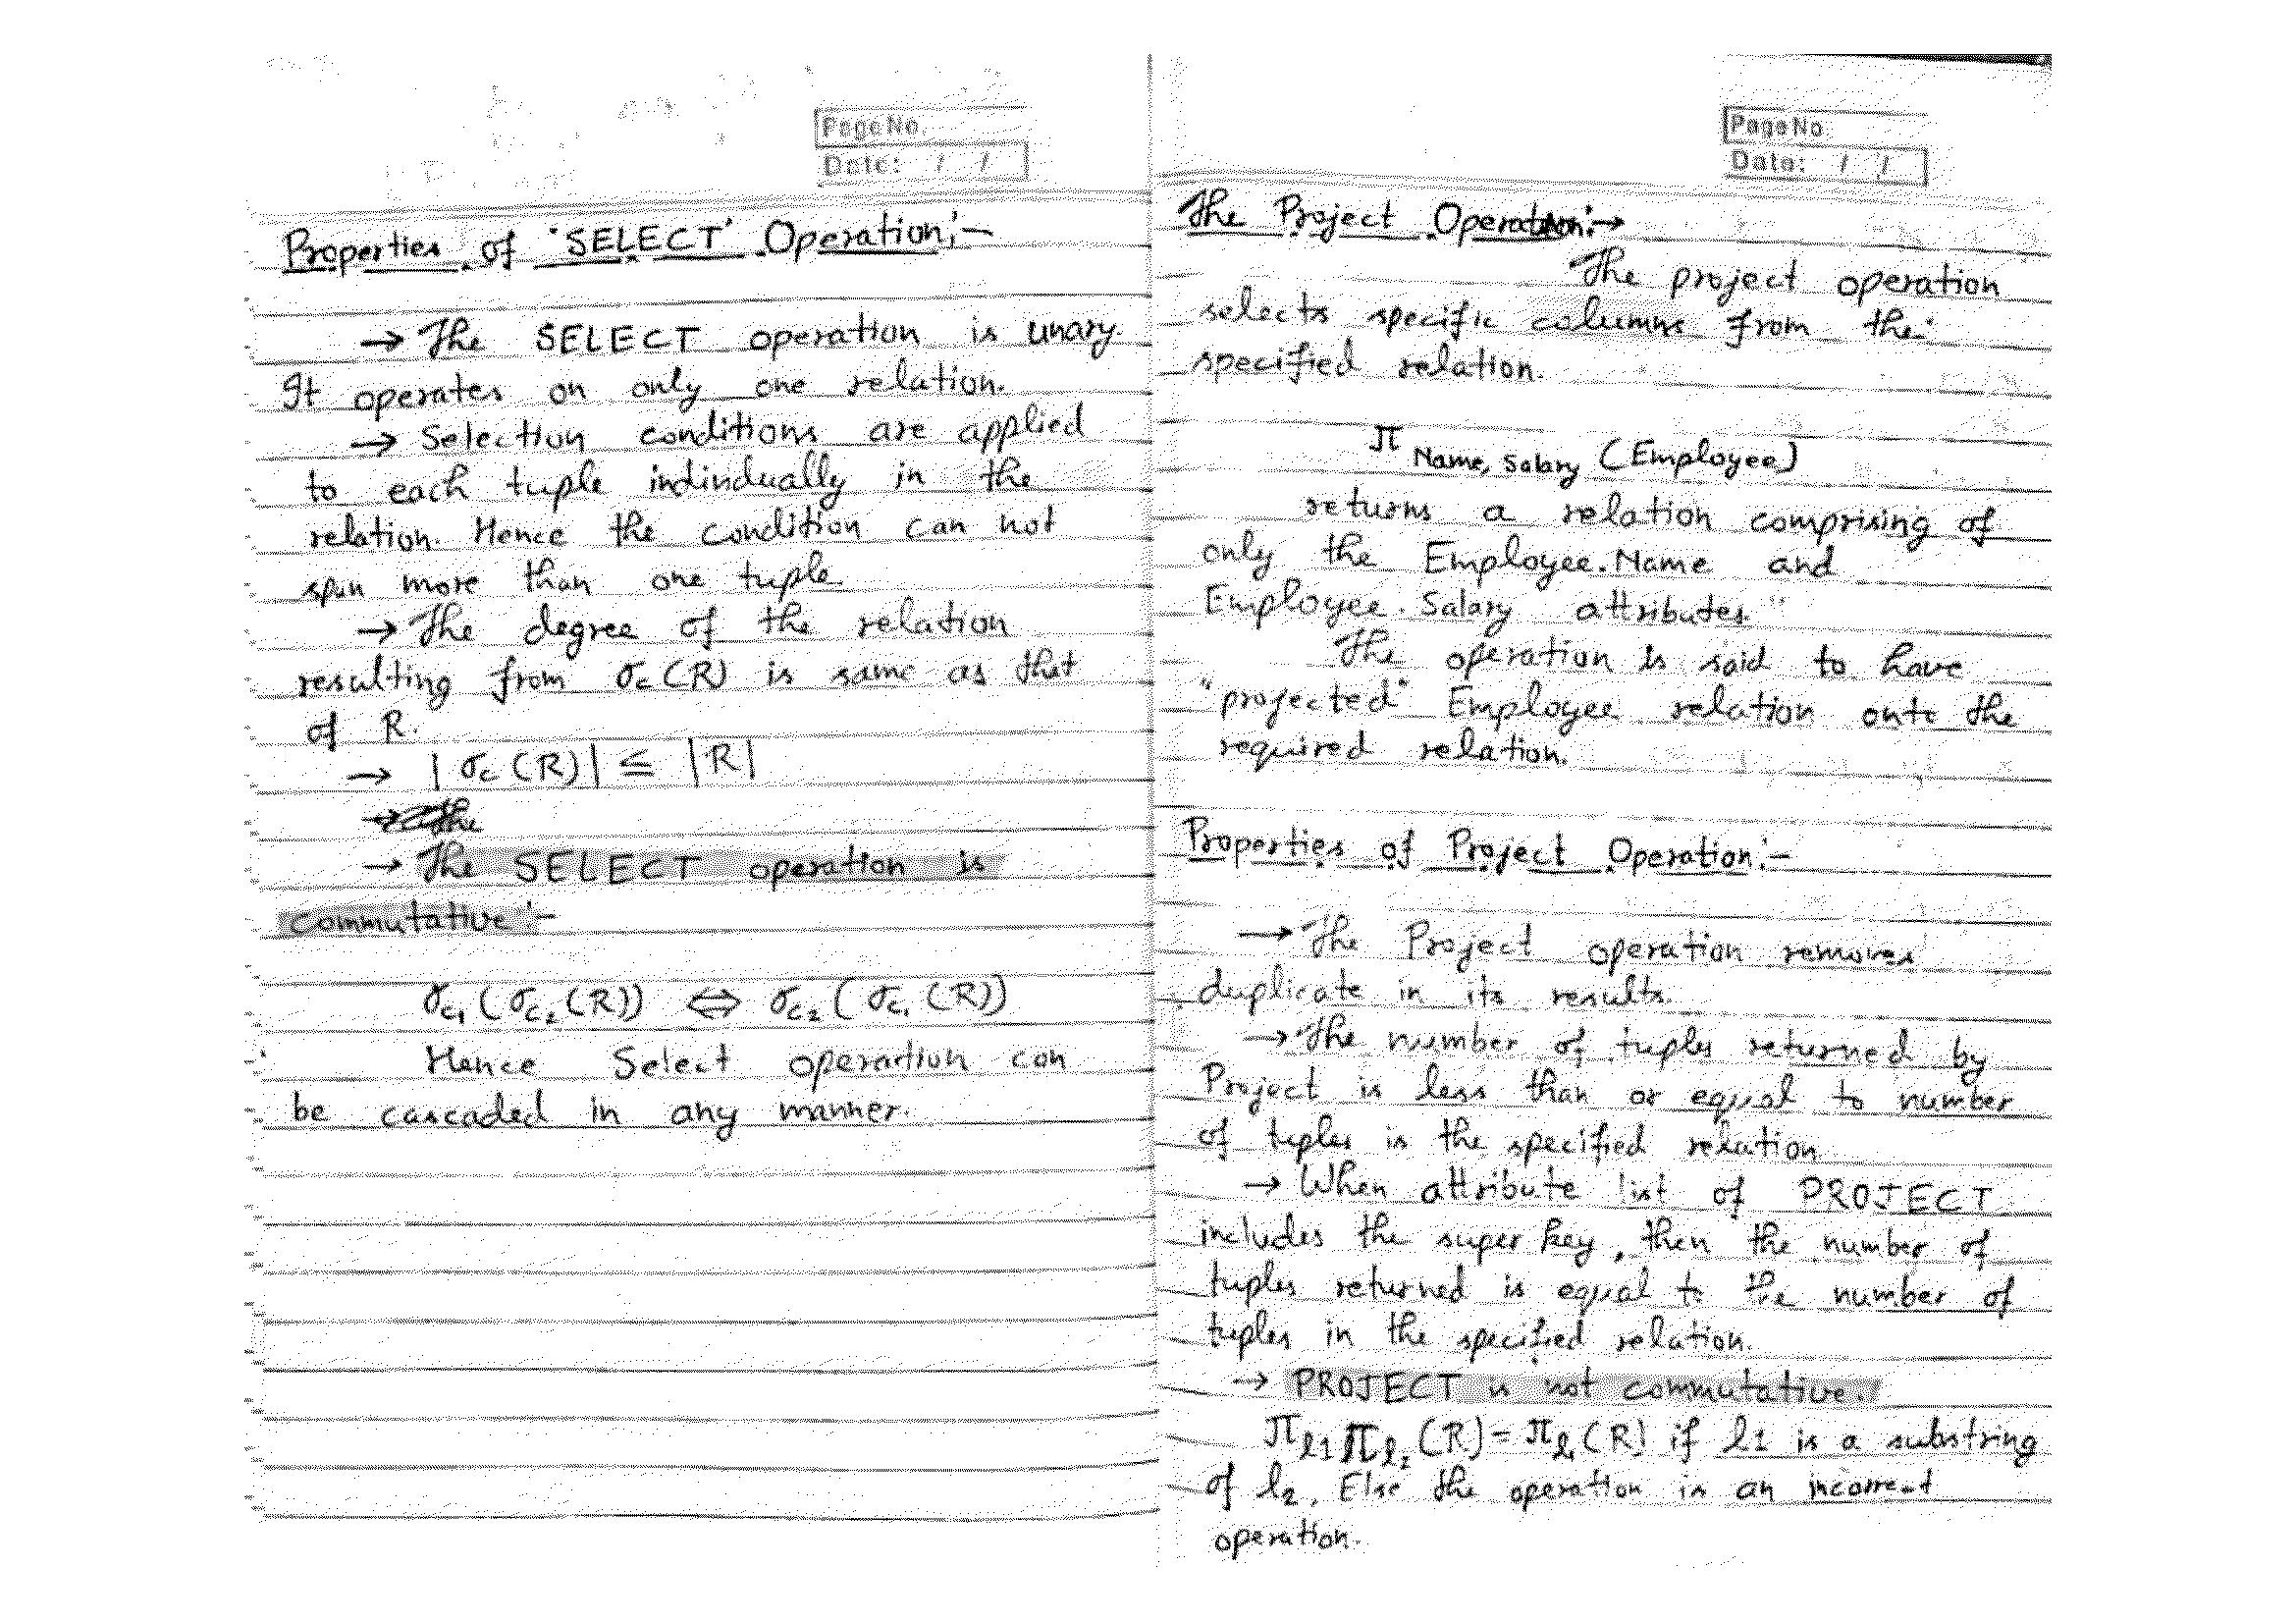 Page No.
Date: / /
Properties of 'SELECT' Operation:-
→ The SELECT operation is unary.
It operates on only one relation.
→ Selection conditions are applied
to each tuple indindually in the
relation. Hence the condition can not
span more than one tuple.
→ The degree of the relation
resulting from σc (R) is same as that
of R.
→ | σc (R) | ≤ | R |
→ The
→ The SELECT operation is
commutative :-
σc₁ (σc₂ (R)) ⇔ σc₂ (σc₁ (R))
Hence Select operation can
be cascaded in any manner.
Page No.
Date: / /
The Project Operation:→
The project operation
selects specific columns from the
specified relation.
π Name, Salary (Employee)
returns a relation comprising of
only the Employee.Name and
Employee.Salary attributes.
The operation is said to have
"projected" Employee relation onto the
required relation.
Properties of Project Operation:-
→ The Project operation removes
duplicate in its results.
→ The number of tuples returned by
Project is less than or equal to number
of tuples is the specified relation
→ When attribute list of PROJECT
includes the super key, then the number of
tuples returned is equal to the number of
tuples in the specified relation.
→ PROJECT is not commutative.
π l1 π l₂ (R) = π l₁ (R) if l1 is a substring
of l2. Else the operation is an incorrect
operation.